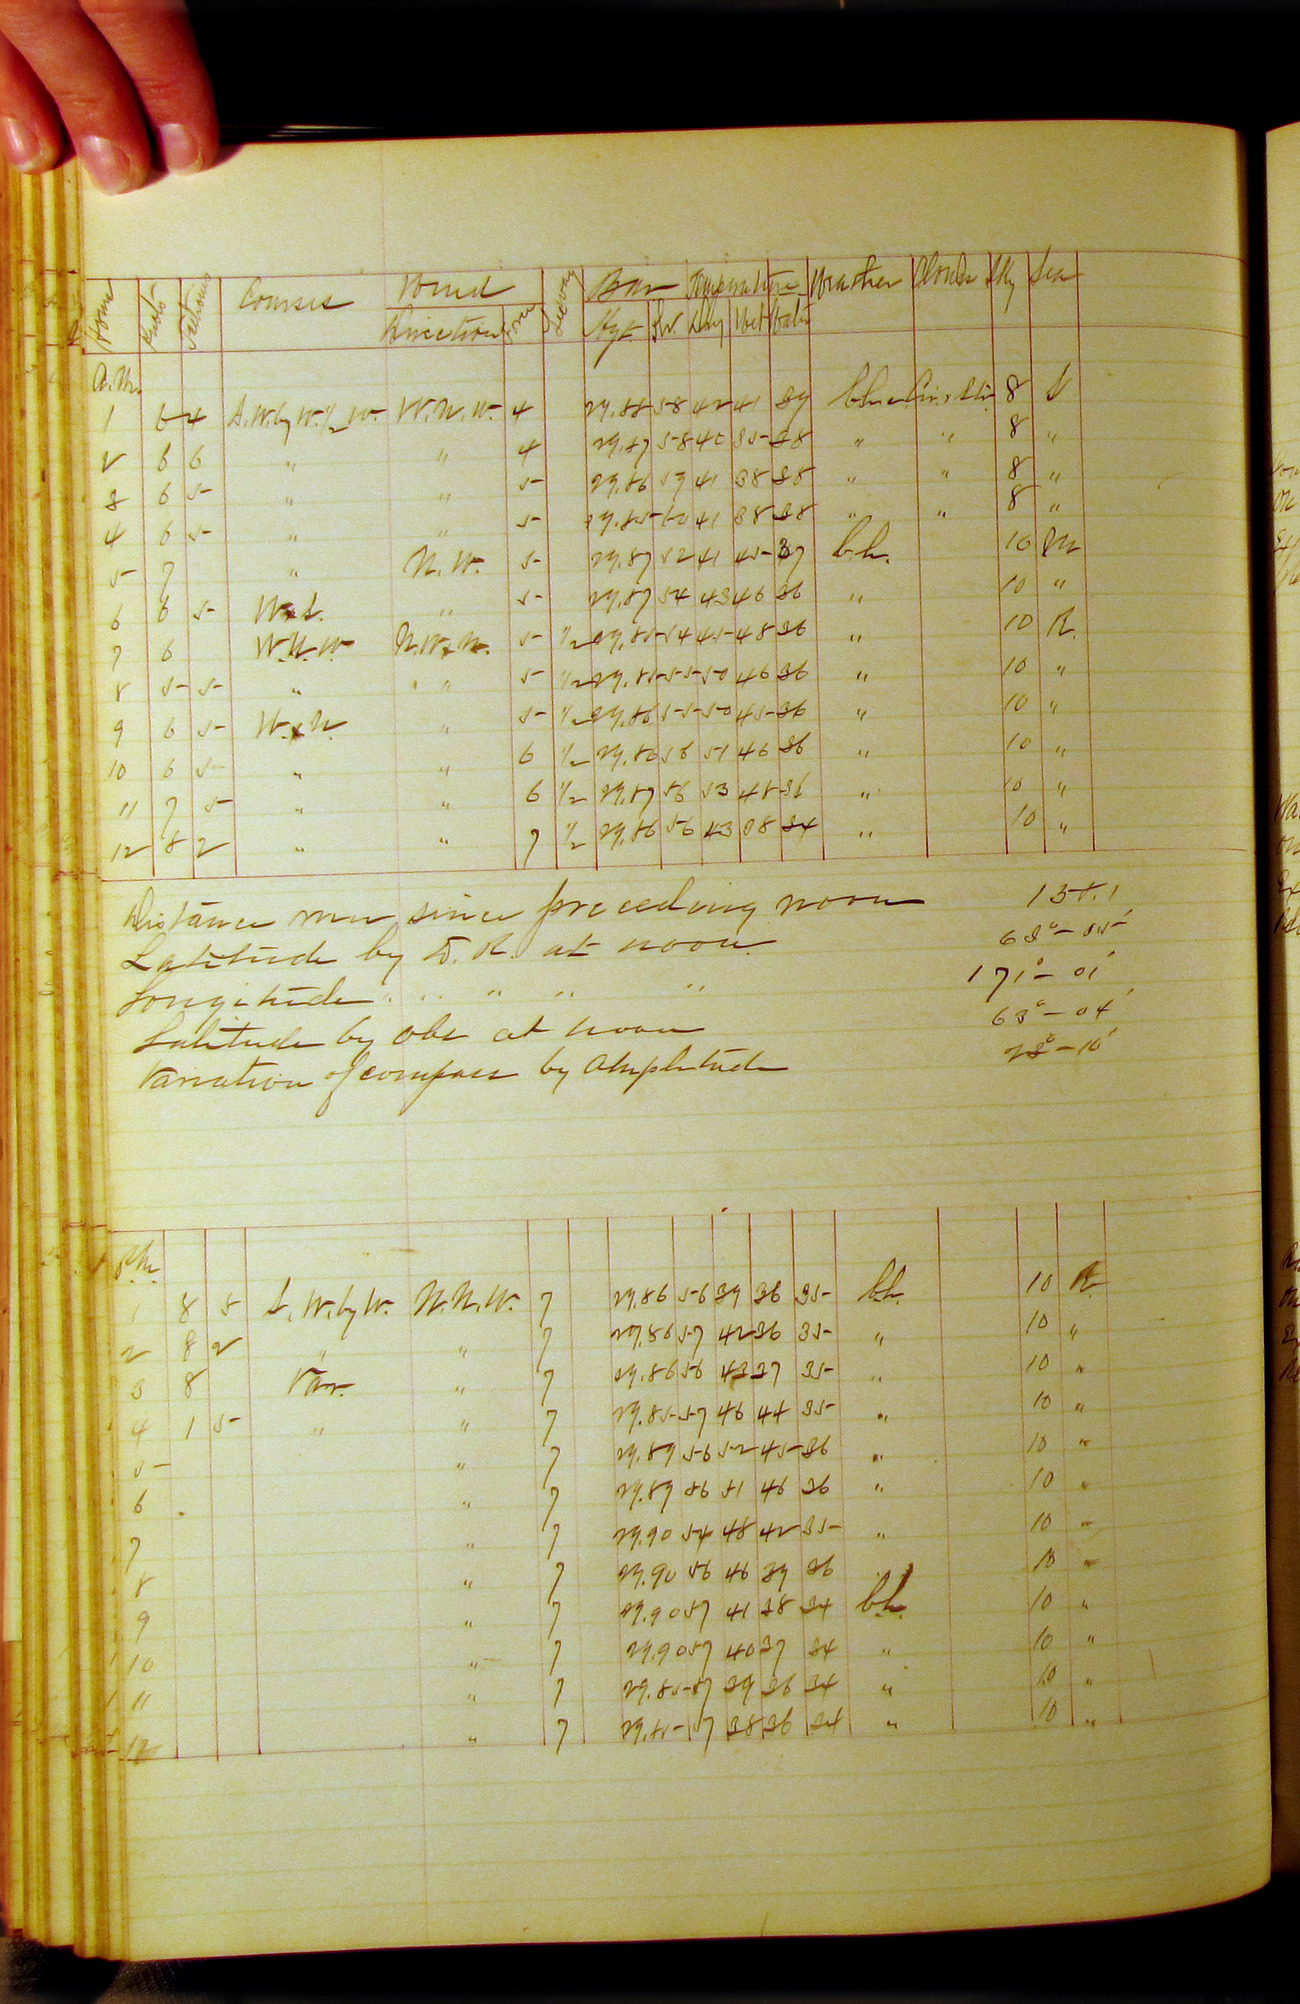 Hours Knots Fathoms Courses Wind Leeway Bar Temperature Weather Clouds Sky Sea
Direction Force Hgt. Dry Wet Water
A.M.
1 6 4 S.W. by W. ½ W. W.N.W. 4 58 42 41 39 8 S
2 6 6 " " 4 29.87 58 38 " " 8 "
3 6 5 " " 5 29.86 59 41 38 38 " " 8 "
4 6 5 " " 5 29.85 60 41 38 38 " " 8 "
5 7 " N.W. 5 29.87 52 41 45 37 b.h. 10 M
6 6 5 W x S. " 5 29.87 54 43 46 36 " 10 "
7 6 W.N.W. N.W x N. 5 ½ 29.85 54 45 48 36 " 10 R.
8 5 5 " " 5 ½ 29.85 55 50 46 36 " 10 "
9 6 5 W x N. " 5 ½ 29.86 55 50 45 36 " 10 "
10 6 5 " " 6 ½ 29.86 56 51 46 36 " 10 "
11 7 5 " " 6 ½ 29.87 56 53 48 36 " 10 "
12 8 2 " " 7 ½ 29.86 56 43 38 34 " 10 "
Distance run since preceeding noon
Latitude by D.R. at noon 63°-05'
Longitude " " " " 171°-01'
Latitude by obs at noon 63°-04'
Variation of compass by Amplitude 23°-10'
P.M.
1 8 5 S.W. by W. N.N.W. 7 29.86 56 39 36 35 b.h. 10 R
2 8 2 " " 7 29.86 57 42 36 35 " 10 "
3 8 Var. " 7 29.86 56 43 37 35 " 10 "
4 1 5 " " 7 29.85 57 46 44 35 " 10 "
5 " 7 29.89 56 52 45 36 " 10 "
6 " 7 29.89 56 51 46 36 " 10 "
7 " 7 29.90 54 48 42 35 " 10 "
8 " 7 29.90 56 46 39 36 10 "
9 " 7 29.90 57 41 38 34 b.h. 10 "
10 " 7 29.90 57 40 37 34 " 10 "
11 " 7 29.85 57 39 36 34 " 10 "
12 " 7 29.85 57 38 36 34 " 10 "